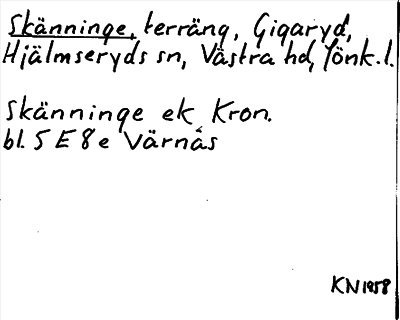 Skänninge, terräng, Gigaryd,
Hjälmseryds sn, Västra hd, Jönk. l.
Skänninge ek. Kron.
bl. 5 E 8 e Värnäs
KN 1958